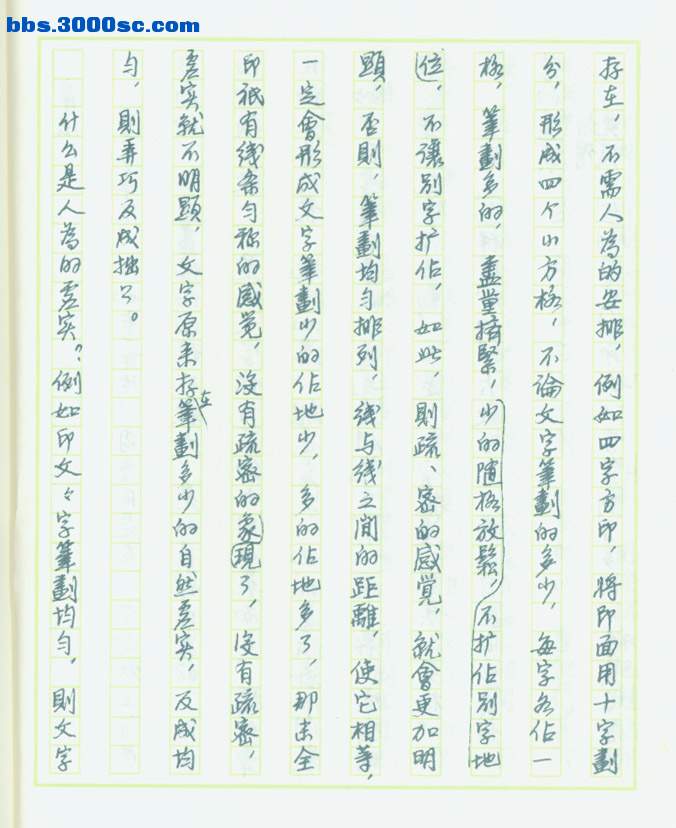 bbs.3000sc.com
存在，不需人為的安排，例如四字方印，將印面用十字劃
分，形成四个小方格，不論文字筆劃的多少，每字各佔一
格，筆劃多的，盡量擠緊，少的隨格放鬆，不扩佔別字地
位，不讓別字扩佔，如此，則疏、密的感觉，就會更加明
顯，否則，筆劃均匀排列，线与线之间的距離，使它相等，
一定會形成文字筆劃少的佔地少，多的佔地多了，那末全
印祇有线条匀称的感觉，沒有疏密的象現了，沒有疏密，
虛实就不明顯，文字原来存在筆劃多少的自然虛实，反成均
匀，則弄巧反成拙了。
什么是人為的虛实？例如印文々字筆劃均匀，則文字